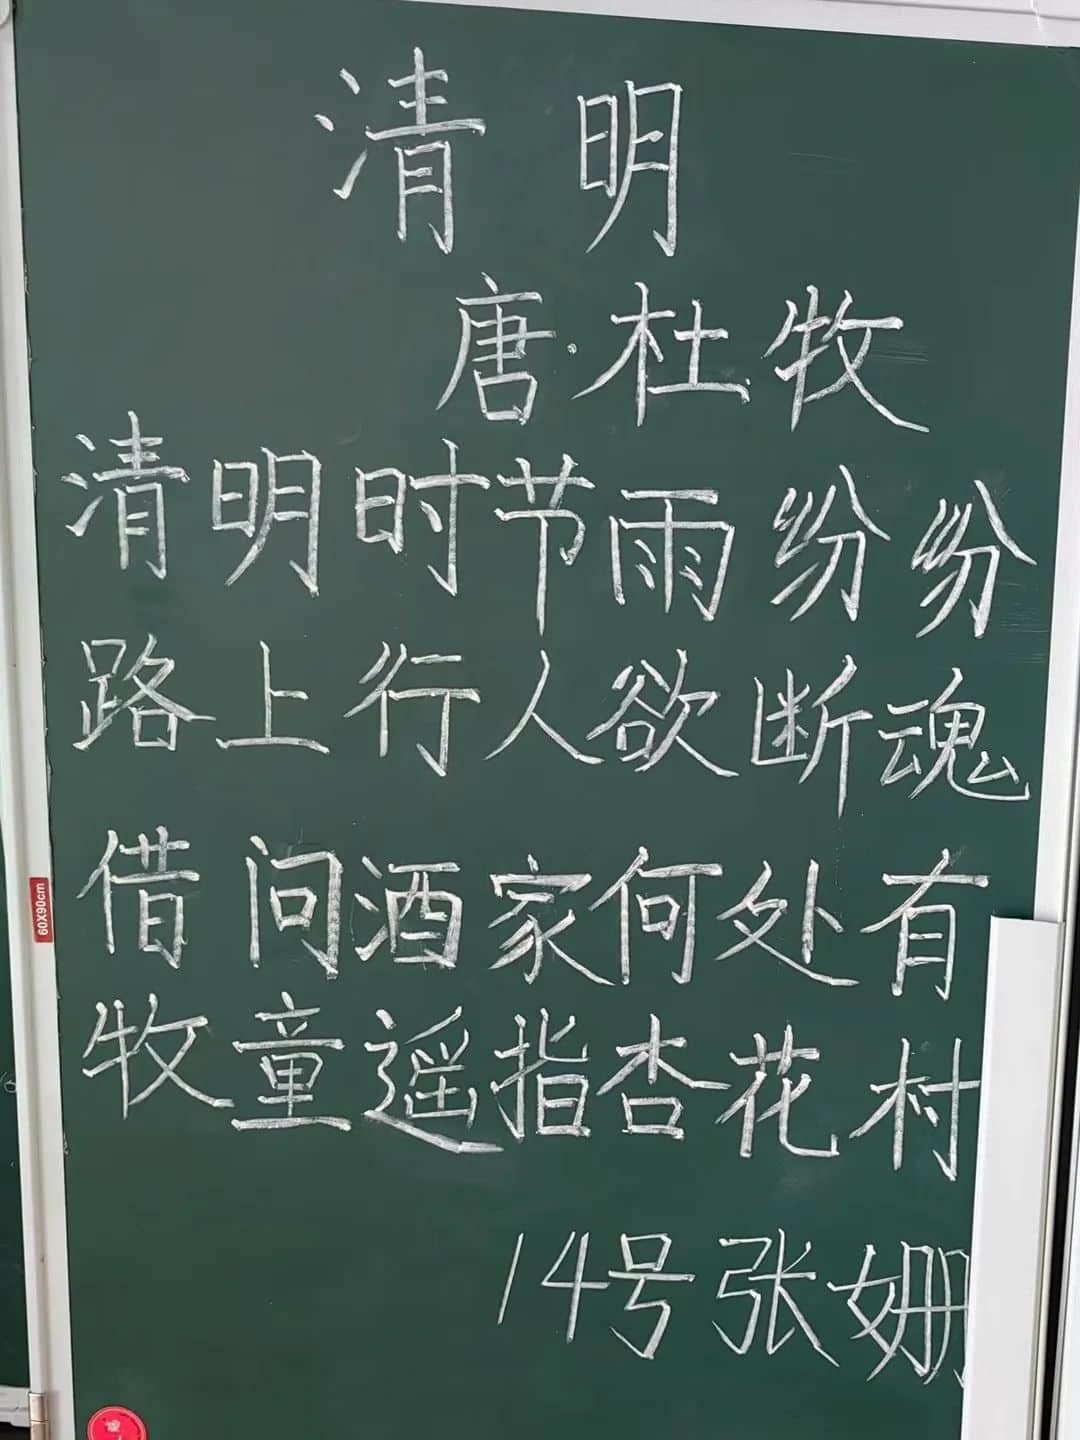 清明
唐·杜牧
清明时节雨纷纷
路上行人欲断魂
借问酒家何处有
牧童遥指杏花村
14号张姗
60X90cm